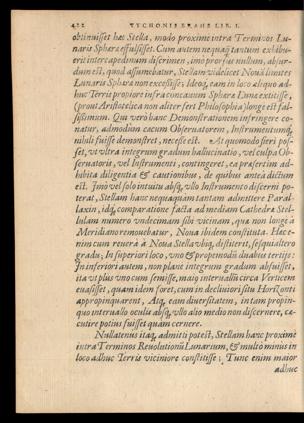 422 TYCHONIS BRAHE LIB. I.
obtinuisset hæc Stella, modo proximè intra Terminos Lu-
naris Sphæræ effulsisset. Cum autem nequaq; tantum exhibu-
erit intercapedinum discrimen, imò prorsus nullum, absur-
dum est, quod assumebatur, Stellam videlicet Nouã limites
Lunaris Sphæræ non excessisse: Ideoq; eam in loco aliquo ad-
huc Terris propiore infra concauum Sphæræ Lunæ extitisse,
(prout Aristotelica non aliter fert Philosophia) longè est fal-
sissimum. Qui verò hanc Demonstrationem infringere co-
natur, admodum cæcum Obseruatorem, Instrumentumq;
nihili fuisse demonstret, necesse est. At quomodo fieri pos-
set, vt vltra integrum gradum hallucinatio, vel culpa Ob-
seruatoris, vel Instrumenti, contingeret, ea præsertim ad-
hibita diligentia & cautionibus, de quibus anteà dictum
est. Imò vel solo intuitu absq; vllo Instrumento discerni po-
terat, Stellam hanc nequaquàm tantam admittere Paral-
laxin, idq; comparatione facta ad mediam Cathedræ Stel-
lulam numero vndecimam sibi vicinam, quæ non longè à
Meridiano remouebatur, Noua ibidem constituta. Hæc e-
nim cum reuerà à Noua Stella vbiq; distiterit, sesquialtero
gradu; In superiori loco, vno & propemodũ duabus tertijs:
In inferiori autem, non planè integrum gradum abfuisset,
ita vt plus vno cum semisse, maiq; interuallũ circa Verticem
euasisset, quàm idem foret, cum in decliuiori situ Horizonti
appropinquarent, Atq; eam diuersitatem, in tam propin-
quo interuallo oculis absq; vllo alio medio non discernere, cæ-
cutire potius fuisset quàm cernere.
Nullatenus itaq; admitti potest, Stellam hanc proximè
intra Terminos Reuolutionũ Lunarium, & multò minùs in
loco adhuc Terris viciniore constitisse; Tunc enim maior
adhuc